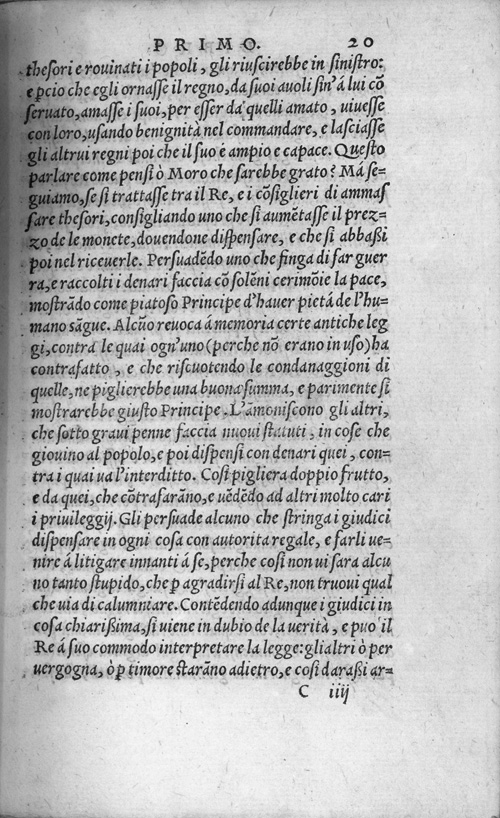 PRIMO. 20
thesori e rouinati i popoli, gli riuscirebbe in sinistro:
e ꝑcio che egli ornasse il regno, da suoi auoli sin'á lui cõ
seruato, amasse i suoi, per esser da quelli amato, uiuesse
con loro, usando benignità nel commandare, e lasciasse
gli altrui regni poi che il suo e ampio e capace. Questo
parlare come pensi ò Moro che sarebbe grato? Má se=
guiamo, se si trattasse tra il Re, e i cõsiglieri di ammas
sare thesori, consigliando uno che si aumẽtasse il prez=
zo de le monete, douendone dispensare, e che si abbaßi
poi nel riceuerle. Persuadẽdo uno che finga di far guer
ra, e raccolti i denari faccia cõ solẽni cerimõie la pace,
mostrãdo come piatoso Principe d'hauer pietá de l'hu=
mano sãgue. Alcũo reuoca á memoria certe antiche leg
gi, contra le quai ogn'uno (perche nõ erano in uso) ha
contrafatto, e che riscuotendo le condanaggioni di
quelle, ne piglierebbe una buona summa, e parimente si
mostrarebbe giusto Principe. L'amoniscono gli altri,
che sotto graui penne faccia nuoui statuti, in cose che
giouino al popolo, e poi dispensi con denari quei, con=
tra i quai ua l'interditto. Cosi pigliera doppio frutto,
e da quei, che cõtrafarãno, e uẽdẽdo ad altri molto cari
i priuileggij. Gli persuade alcuno che stringa i giudici
dispensare in ogni cosa con autorita regale, e farli ue=
nire á litigare innanti á se, perche cosi non ui sara alcu
no tanto stupido, che ꝑ agradirsi al Re, non truoui qual
che uia di calumniare. Contẽdendo adunque i giudici in
cosa chiarißima, si uiene in dubio de la uerità, e puo il
Re á suo commodo interpretare la legge: gli altri ò per
uergogna, ò ꝑ timore starãno adietro, e cosi daraßi ar=
C iiij